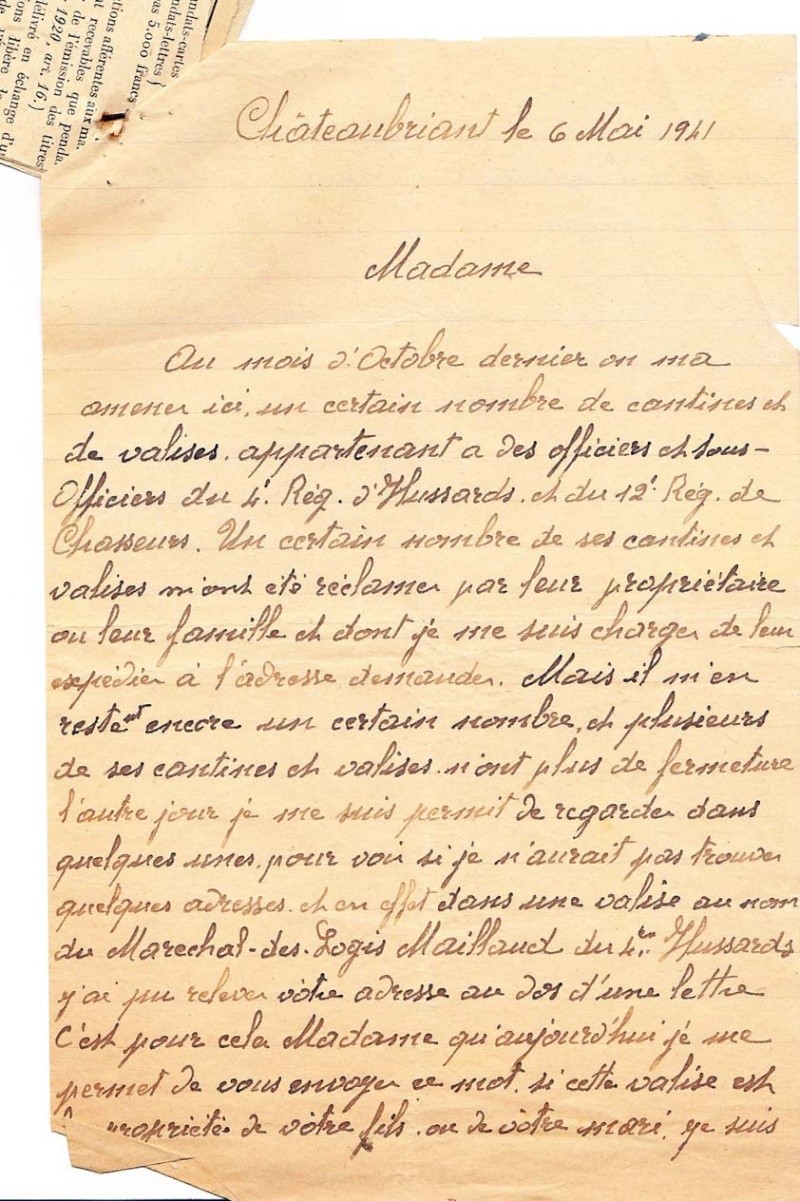 ndats-cartes
ndats-lettres }
as 5.000 francs
tions afférentes aux ma.
t recevables que penda.
de l'émission des titres
1920, art. 16.)
délivré en échange d'u
ons libère
Châteaubriant le 6 Mai 1941
Madame
Au mois d'Octobre dernier on ma
amener ici, un certain nombre de cantines et
de valises. appartenant a des officiers et sous-
Officiers du 4e. Rég. d'Hussards. et du 12e Rég. de
Chasseurs. Un certain nombre de ses cantines et
valises m'ont été réclamer par leur propriétaire
ou leur famille et dont je me suis charger de leur
expédier à l'adresse demander. Mais il m'en
restent encore un certain nombre, et plusieurs
de ses cantines et valises. n'ont plus de fermeture
l'autre jour je me suis permit de regarder dans
quelques unes. pour voir si je n'aurait pas trouver
quelques adresses. et en effet dans une valise au nom
du Marechal-des-Logis Maillaud du 4em Hussards
j'ai pu relever vôtre adresse au dos d'une lettre
C'est pour cela Madame qu'aujourd'hui je me
permet de vous envoyer ce mot. si cette valise est
propriété de vôtre fils. ou de vôtre mari. je suis